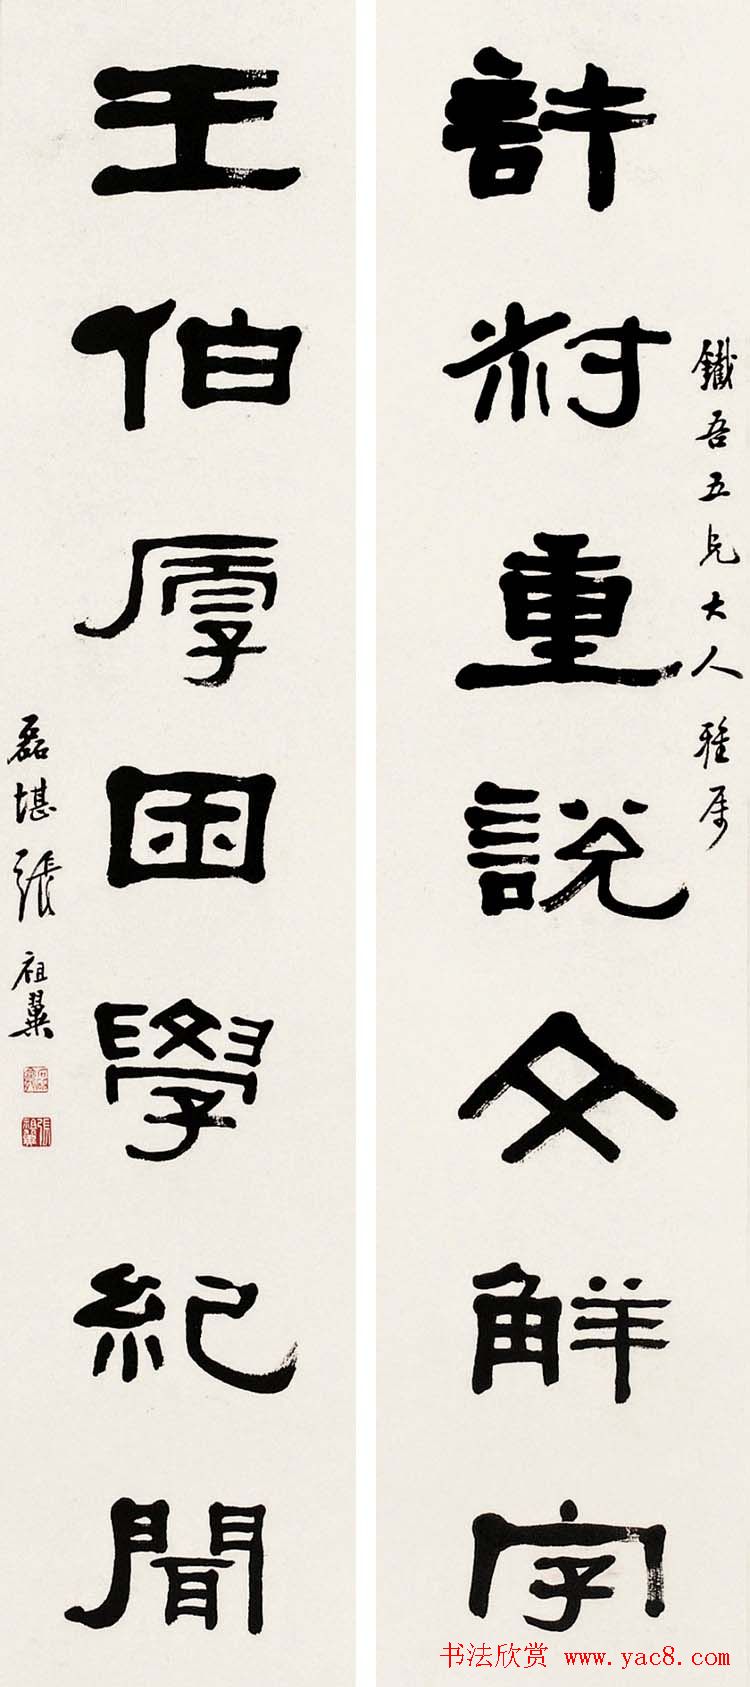 鐵吾五兄大人雅属
許叔重說文解字
王伯厚困學紀聞
磊堪張祖翼
張祖翼
书法欣赏 www.yac8.com